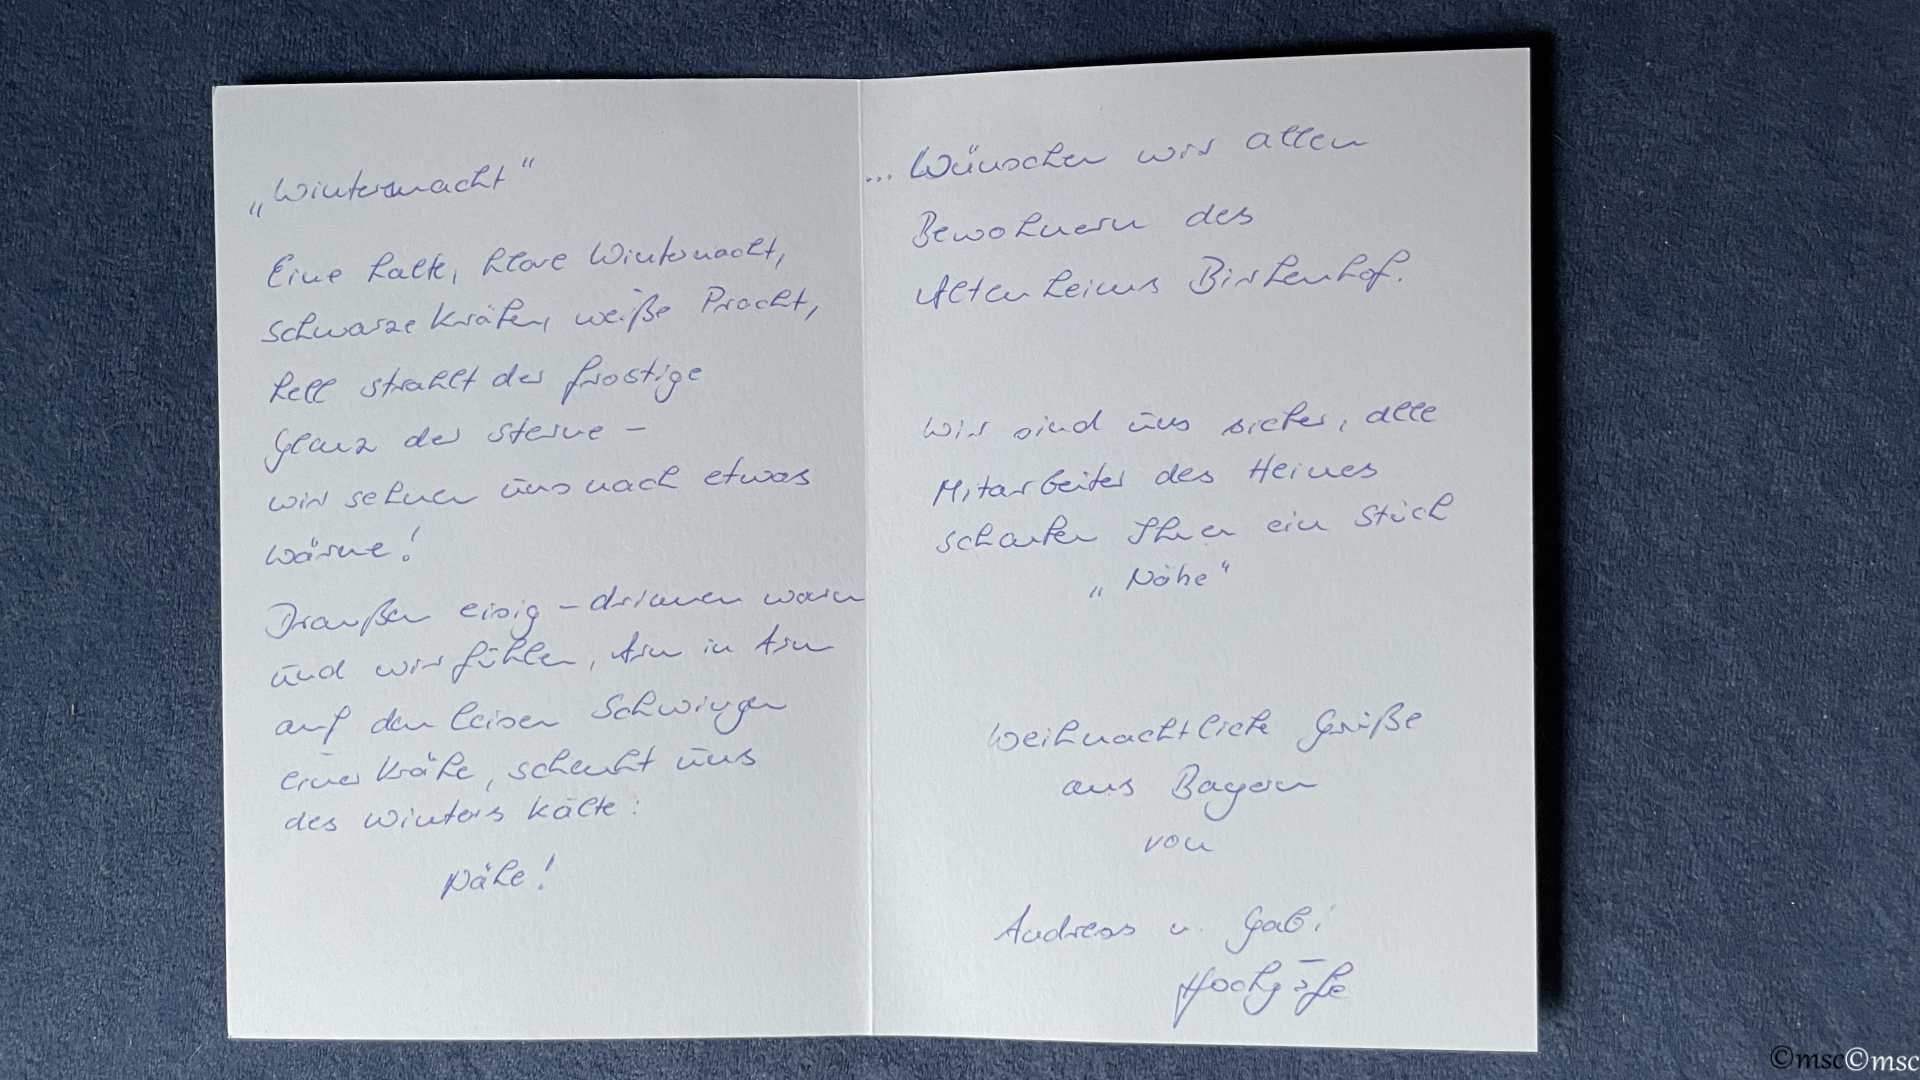 „Winternacht“
Eine kalte, klare Winternacht,
schwarze Krähen, weiße Pracht,
hell strahlt der frostige
Glanz der Sterne –
wir sehnen uns nach etwas
Wärme!
Draußen eisig – drinnen warm
und wir fühlen, Arm in Arm
auf den leisen Schwingen
einer Krähe, schenkt uns
des Winters Kälte:
Nähe!
... Wünschen wir allen
Bewohnern des
Altenheims Birkenhof.
Wir sind uns sicher, alle
Mitarbeiter des Heimes
schenken Ihnen ein Stück
„Nähe“
Weihnachtliche Grüße
aus Bayern
von
Andreas u. Gabi
©msc©msc